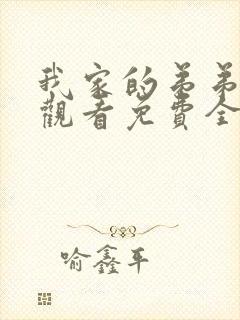 我家的弟弟
觀看免費全
喻鑫平